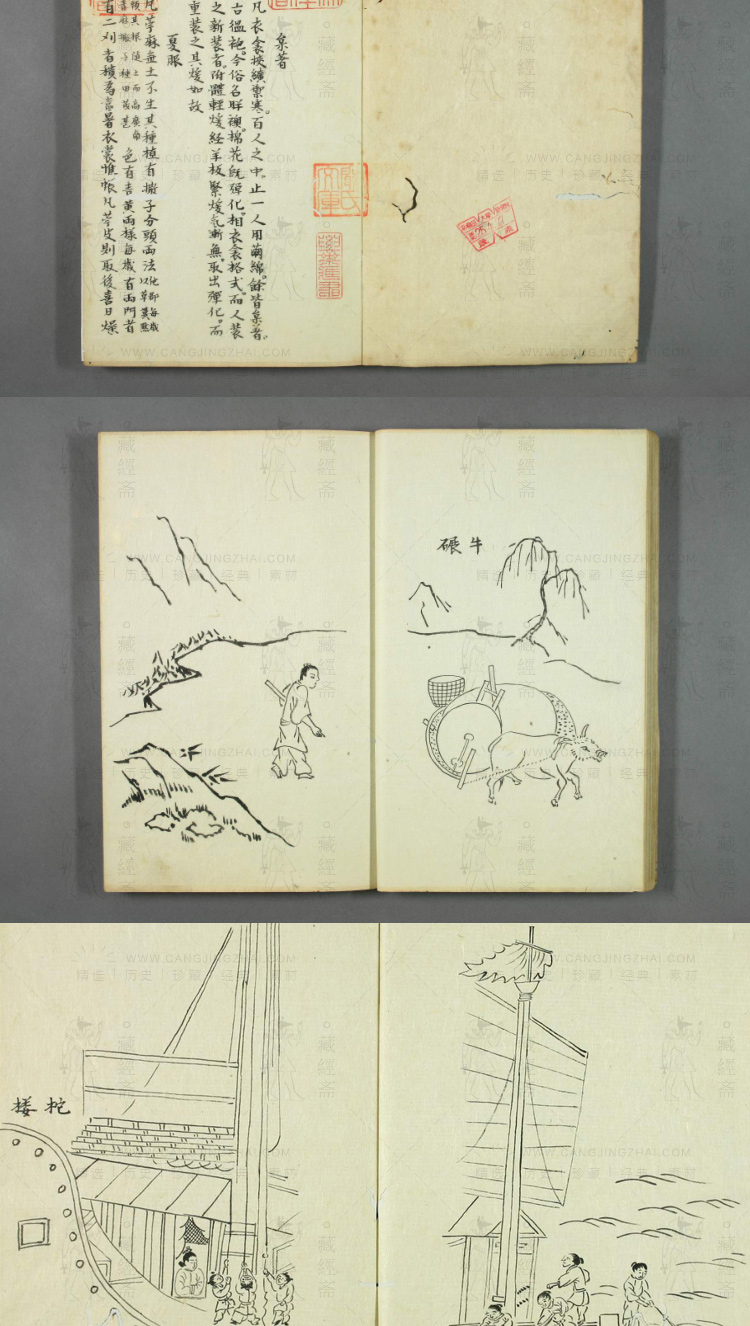 枲著
凡衣衾挾纊禦寒。百人之中。止一人用繭綿。餘皆枲著。
古縕袍。今俗名胖襖。棉花既彈化。相衣衾格式。而人裝
之新裝者。附體輕煖。經年板緊。煖氣漸無。取出彈化。而
重裝之其煖如故
夏服
凡苧麻無土不生其種植有撒子分頭兩法池郡每歲以草糞壓
頭其根隨土而高廣南青麻撒子種田茂甚色有青黃兩樣每歲有兩刈者
刈者績為當暑衣裳帷帳凡苧皮剝取後喜日燥
牛碾
柁樓
藏經斋
WWW.CANGJINGZHAI.COM
精选|历史|珍藏|经典|素材